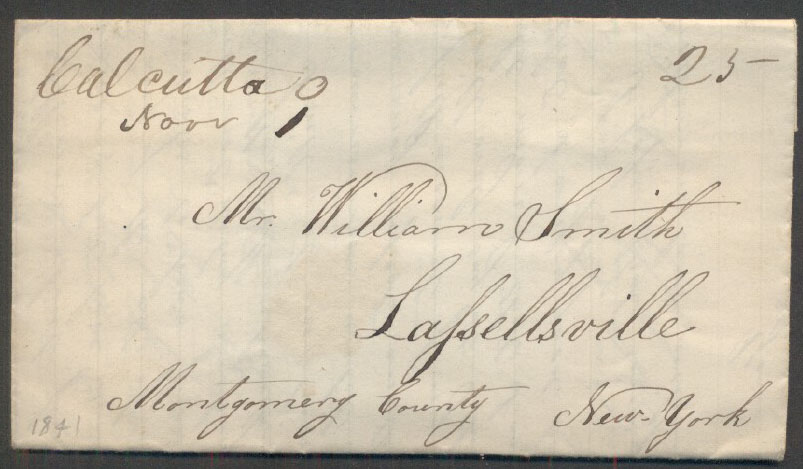 Calcutta O
25
Novr 1
Mr. William Smith
Lassellsville
Montgomery County New-York
1841